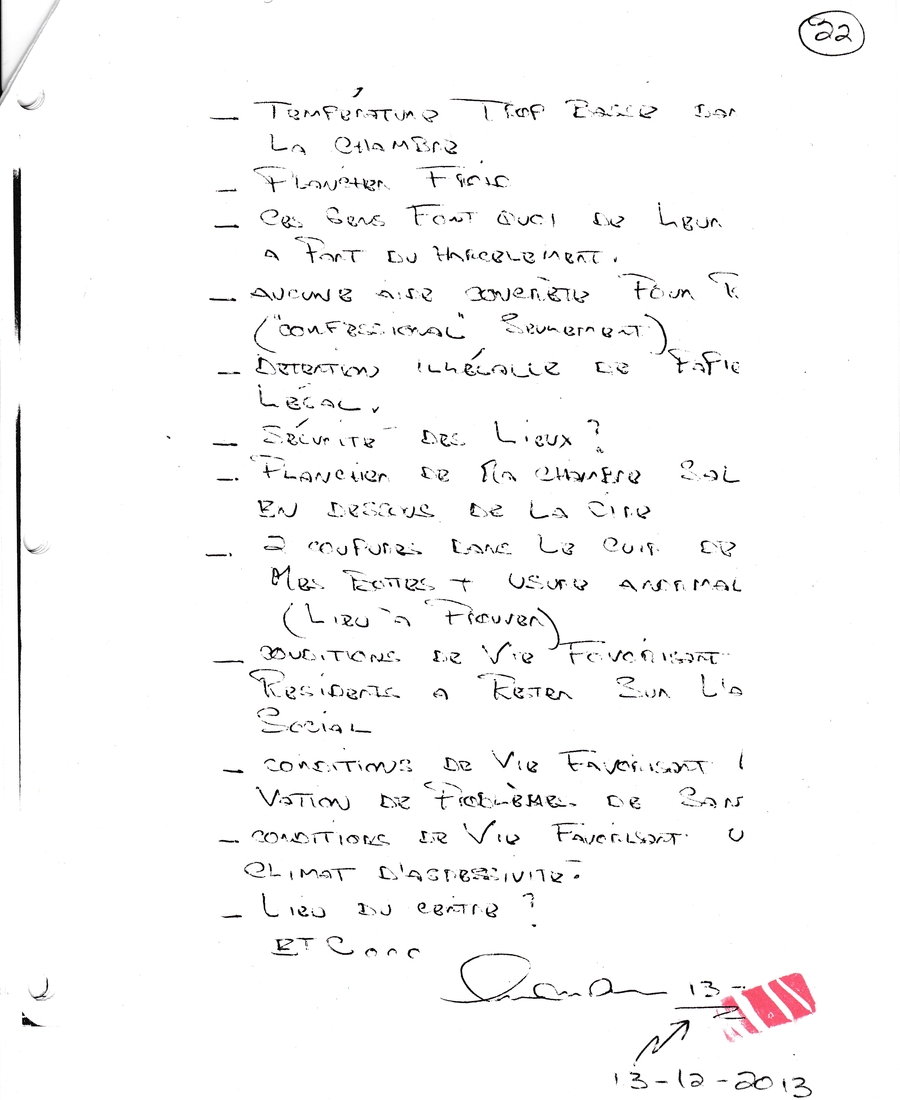 22
— TEMPÉRATURE TROP BASSE DAN
LA CHAMBRE
— PLANCHER FROID
— CES GENS FONT QUOI DE LEUR
A PART DU HARCELEMENT.
— AUCUNE AIDE CONCRÈTE POUR
("CONFESSIONAL" SEULEMENT)
— DETENTION ILLÉGALLE DE PAPIE
LEGAL.
— SÉCURITÉ DES LIEUX ?
— PLANCHER DE MA CHAMBRE SAL
EN DESSOUS DE LA CIRE
— 2 COUPURES DANS LE CUIR DE
MES BOTTES + USURE ANORMAL
(LIEU À PROUVER)
— CONDITIONS DE VIE FAVORISANT
RESIDENTS A RETER SUR L'A
SOCIAL
— CONDITIONS DE VIE FAVORISANT
VATION DE PROBLÈMES DE SAN
— CONDITIONS DE VIE FAVORISANT U
CLIMAT D'AGRESSIVITÉ.
— LIEU DU CENTRE ?
ETC...
13 -
13-12-2013